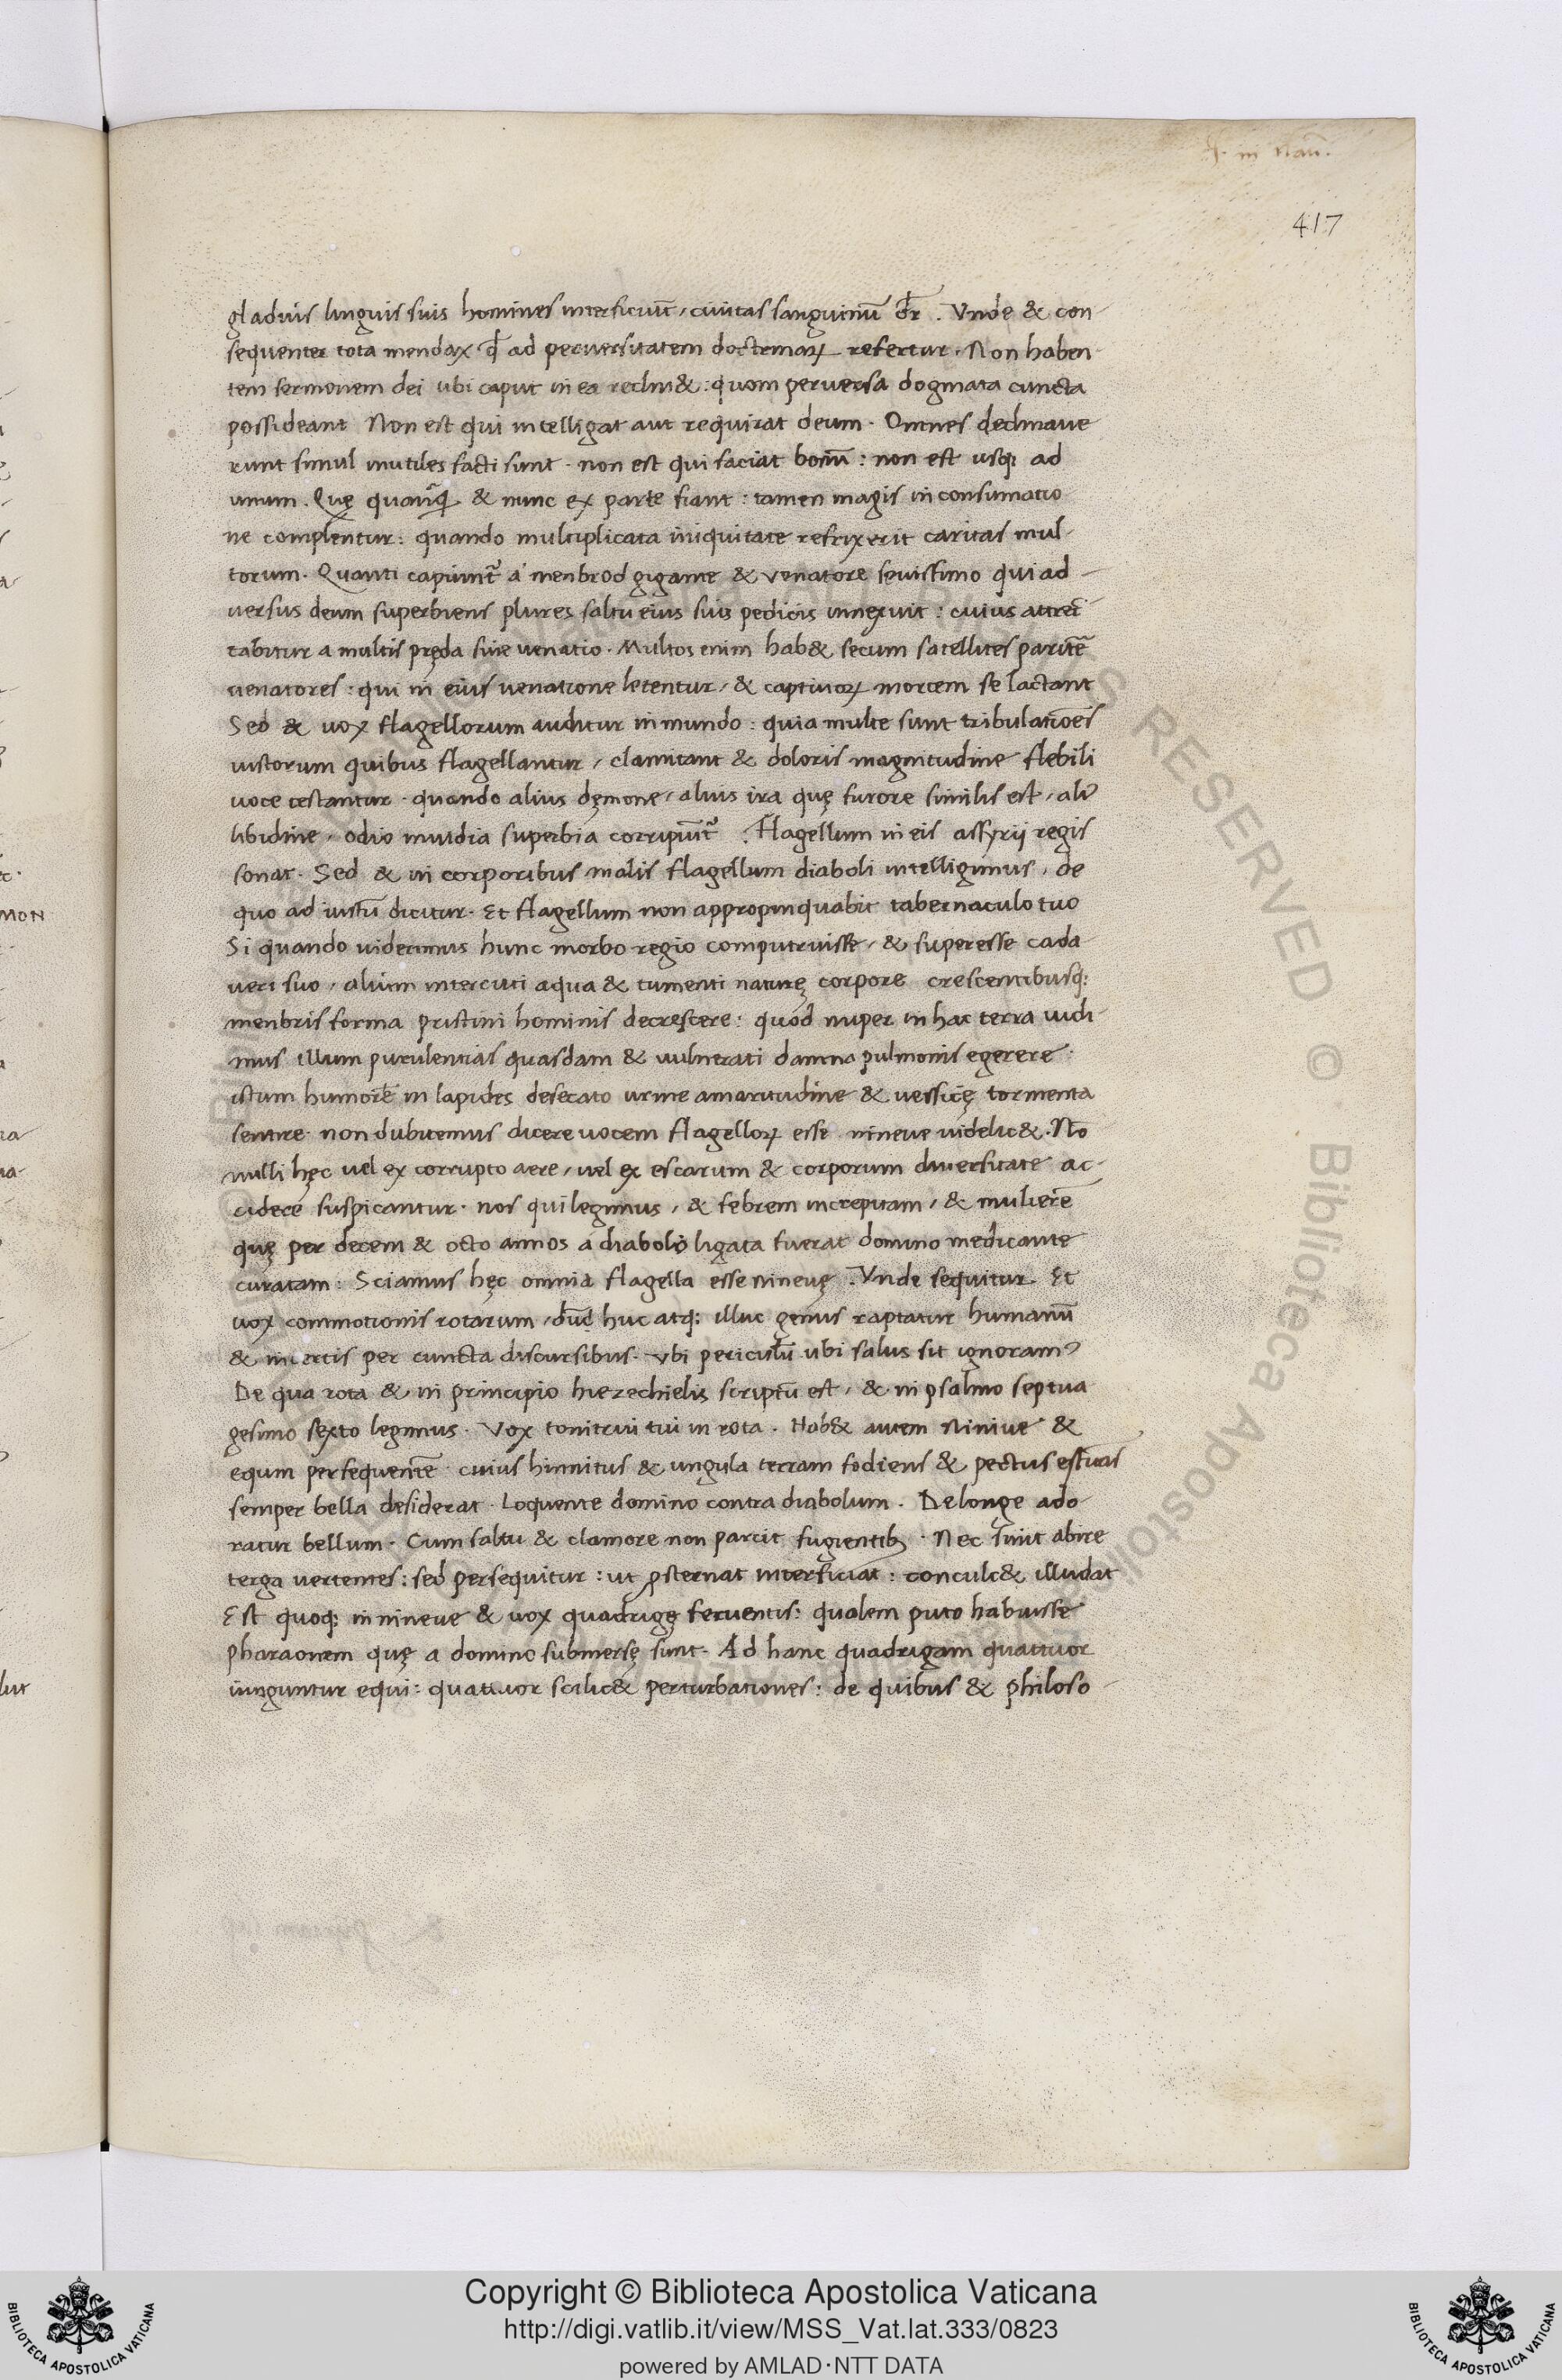 q. in Naū.
417
gladiis linguis suis homines interficiūt, ciuitas sanguinū dr̄. Vnde & con-
sequenter tota mendax. q̄ ad peruersitatem doctrinaꝝ refertur. Non haben-
tem sermonem dei ubi caput in ea reclin&: quom peruersa dogmata cuncta
possideant Non est qui intelligat aut requirat deum. Omnes declinaue
runt simul inutiles facti sunt. non est qui faciat bonū: non est usq; ad
unum. Quę quanq̄ & nunc ex parte fiant: tamen magis in consumatio
ne complentur: quando multiplicata iniquitate refrixerit caritas mul-
torum. Quanti capiunt᷑ a menbrod gigante & venatore seuissimo qui ad-
versus deum superbiens plures saltu eius suis pedicis innexuit: cuius attrec
tabitur a multis pręda siue uenatio. Multos enim hab& secum satellites paritē
uenatores: qui in eius uenatione letentur, & captiuoꝝ mortem se lactant
Sed & uox flagellorum auditur in mundo: quia multe sunt tribulatiōes
iustorum quibus flagellantur, clamitant & doloris magnitudine flebili
uoce testantur. quando alius dęmone, alius ira quę furore similis est, ali᷒
libidine, odio inuidia superbia corripiūt᷑. Flagellum in eis assyrij regis
sonat. Sed & in corporibus malis flagellum diaboli intelligimus, de
quo ad iustū dicitur. Et flagellum non appropinquabit tabernaculo tuo
Si quando uiderimus hunc morbo regio computruisse, & superesse cada
ueri suo, alium intercuti aqua & tumenti naturę corpore crescentibusq;
menbris forma pristini hominis decrescere: quod nuper in hac terra uidi
mus illum purulentias quasdam & uulnerati damna pulmonis egerere:
istum humorē in lapides desecato urine amaritudine & uessicę tormenta
sentire non dubitemus dicere uocem flagelloꝝ esse nineue uidelic&. Nō
nulli hęc uel ex corrupto aere, uel ex escarum & corporum diuersitate ac-
cidere suspicantur. nos qui legimus, & febrem increpitam, & mulierē
quę per decem & octo annos a diabolo ligata fuerat domino medicante
curatam: Sciamus hęc omnia flagella esse nineuę. Vnde sequitur. Et
uox commotionis rotarum, dūc huc atq; illuc genus raptatur humanū
& incertis per cuncta discursibus. vbi periculū ubi salus sit ignoram᷒
De qua rota & in principio hiezechielis scriptū est, & in psalmo septua
gesimo sexto legimus. Vox tonitrui tui in rota. Hab& autem Niniue &
equm persequentē cuius hinnitus & ungula terram fodiens & pectus estuās
semper bella desiderat. Loquente domino contra diabolum. De longe ado
ratur bellum. Cum saltu & clamore non parcit fugientibꝫ. Nec sinit abire
terga uertentes: sed persequitur: ut ꝓsternat interficiat: conculc& illudat
Est quoq; in nineue & uox quadrigę feruentis: qualem puto habuisse
pharaonem quę a domino submersę sunt. Ad hanc quadrigam quattuor
iunguntur equi: quattuor scilic& perturbationes: de quibus & philoso-
MON
lut
RESERVED © Biblioteca Apostolica
BIBLIOTECA APOSTOLICA VATICANA
Copyright © Biblioteca Apostolica Vaticana
http://digi.vatlib.it/view/MSS_Vat.lat.333/0823
powered by AMLAD·NTT DATA
BIBLIOTECA APOSTOLICA VATICANA